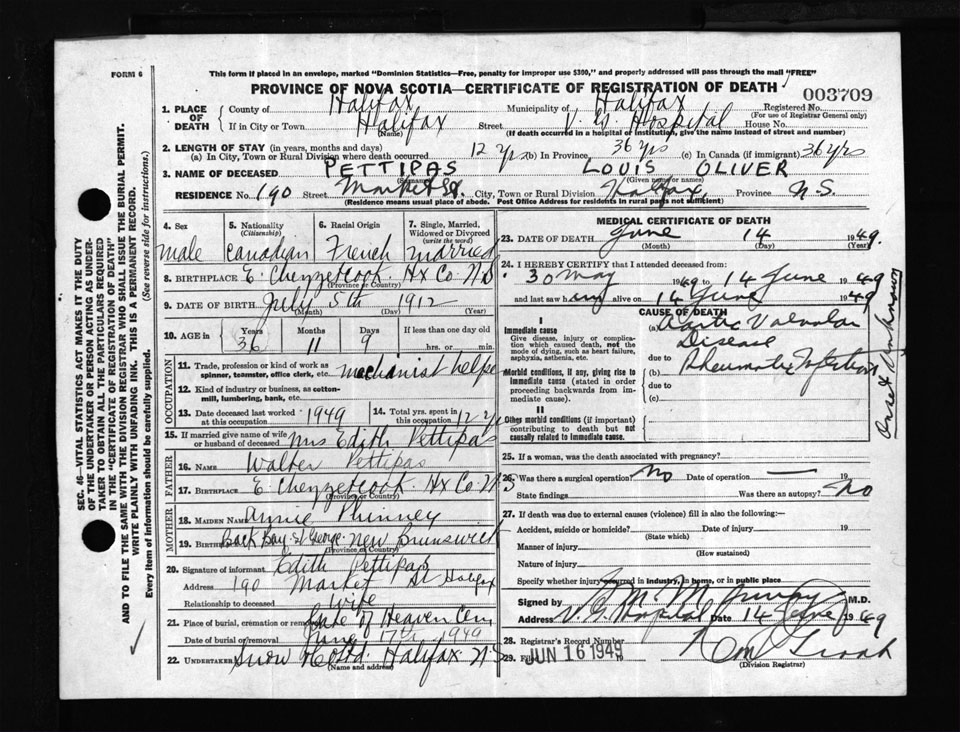 FORM 6
This form if placed in an envelope, marked "Dominion Statistics—Free, penalty for improper use $300," and properly addressed will pass through the mail "FREE"
PROVINCE OF NOVA SCOTIA—CERTIFICATE OF REGISTRATION OF DEATH
003709
1. PLACE OF DEATH
County of Halifax Municipality of Halifax Registered No.
(For use of Registrar General only)
If in City or Town Halifax Street V. G. Hospital House No.
(Name) (If death occurred in a hospital or institution, give the name instead of street and number)
2. LENGTH OF STAY (in years, months and days)
(a) In City, Town or Rural Division where death occurred 12 yrs (b) In Province 36 yrs (c) In Canada (if immigrant) 36 yrs
3. NAME OF DECEASED PETTIPAS LOUIS OLIVER
(Surname) (Given name or names)
RESIDENCE No. 190 Street Market St. City, Town or Rural Division Halifax, Province N.S.
(Residence means usual place of abode. Post Office Address for residents in rural parts not sufficient)
4. Sex
male
5. Nationality (Citizenship)
Canadian
6. Racial Origin
French
7. Single, Married, Widowed or Divorced (write the word)
married
8. BIRTHPLACE E. Chezzetcook Hx Co N.S
(Province or Country)
9. DATE OF BIRTH July 5th 1912
(Month) (Day) (Year)
10. AGE in Years Months Days If less than one day old
36 11 9 hrs. or min.
OCCUPATION
11. Trade, profession or kind of work as spinner, teamster, office clerk, etc. machinist helper
12. Kind of industry or business, as cotton-mill, lumbering, bank, etc.
13. Date deceased last worked at this occupation 1949
14. Total yrs. spent in this occupation 12 yrs
15. If married give name of wife or husband of deceased Mrs Edith Pettipas
FATHER
16. NAME Walter Pettipas
17. BIRTHPLACE E. Chezzetcook Hx Co N.S
(Province or Country)
MOTHER
18. MAIDEN NAME Annie Phinney
19. BIRTHPLACE Back Bay St George New Brunswick
(Province or Country)
20. Signature of informant Edith Pettipas
Address 190 Market St Halifax
Relationship to deceased Wife
21. Place of burial, cremation or removal Gate of Heaven Cem
Date of burial or removal June 17th 1949
22. UNDERTAKER Snow Halifax N.S
(Name and address)
MEDICAL CERTIFICATE OF DEATH
23. DATE OF DEATH June 14 1949.
(Month) (Day) (Year)
24. I HEREBY CERTIFY that I attended deceased from:
30 May 1949 to 14 June 1949
and last saw him alive on 14 June 1949
CAUSE OF DEATH
I
Immediate cause
Give disease, injury or complication which caused death, not the mode of dying, such as heart failure, asphyxia, asthenia, etc.
(a) Aortic Valvular Disease
due to
Morbid conditions, if any, giving rise to immediate cause (stated in order proceeding backwards from immediate cause).
(b) Rheumatic Infection
due to
(c)
Onset Unknown
II
Other morbid conditions (if important) contributing to death but not causally related to immediate cause.
25. If a woman, was the death associated with pregnancy?
26. Was there a surgical operation? No Date of operation — 19
State findings Was there an autopsy? No
27. If death was due to external causes (violence) fill in also the following:
Accident, suicide or homicide? Date of injury 19
(State which)
Manner of injury
(How sustained)
Nature of injury
Specify whether injury occurred in industry, in home, or in public place
Signed by M.D.
Address V. G. Hospital Date 14 June 1949
28. Registrar's Record Number
29. Filed JUN 16 1949
(Division Registrar)
SEC. 46—VITAL STATISTICS ACT MAKES IT THE DUTY
OF THE UNDERTAKER OR PERSON ACTING AS UNDER-
TAKER TO OBTAIN ALL THE PARTICULARS REQUIRED
IN THE "CERTIFICATE OF REGISTRATION OF DEATH"
AND TO FILE THE SAME WITH THE DIVISION REGISTRAR WHO SHALL ISSUE THE BURIAL PERMIT.
WRITE PLAINLY WITH UNFADING INK. THIS IS A PERMANENT RECORD.
Every item of information should be carefully supplied. (See reverse side for instructions.)